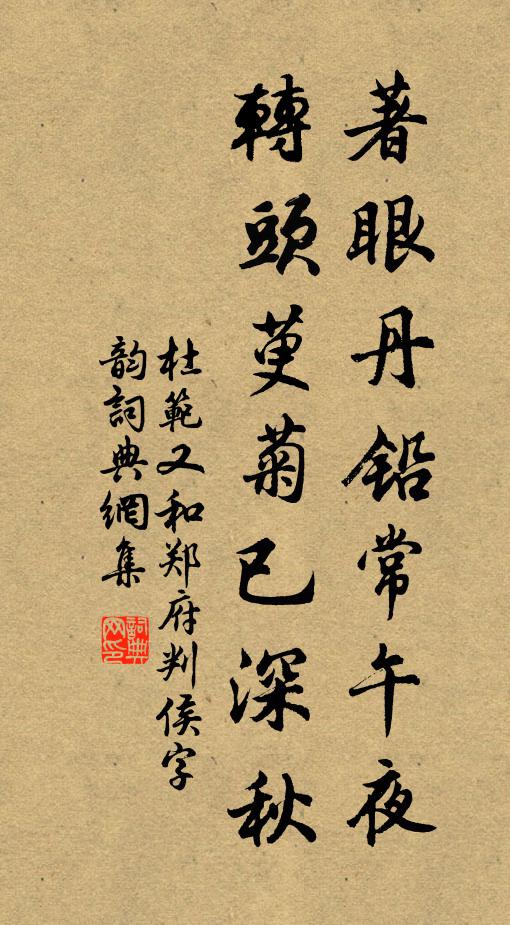 著眼丹鉛常午夜
轉頭萸菊已深秋
杜範又和郑府判侯字
韵詞典網集
詞典
网印